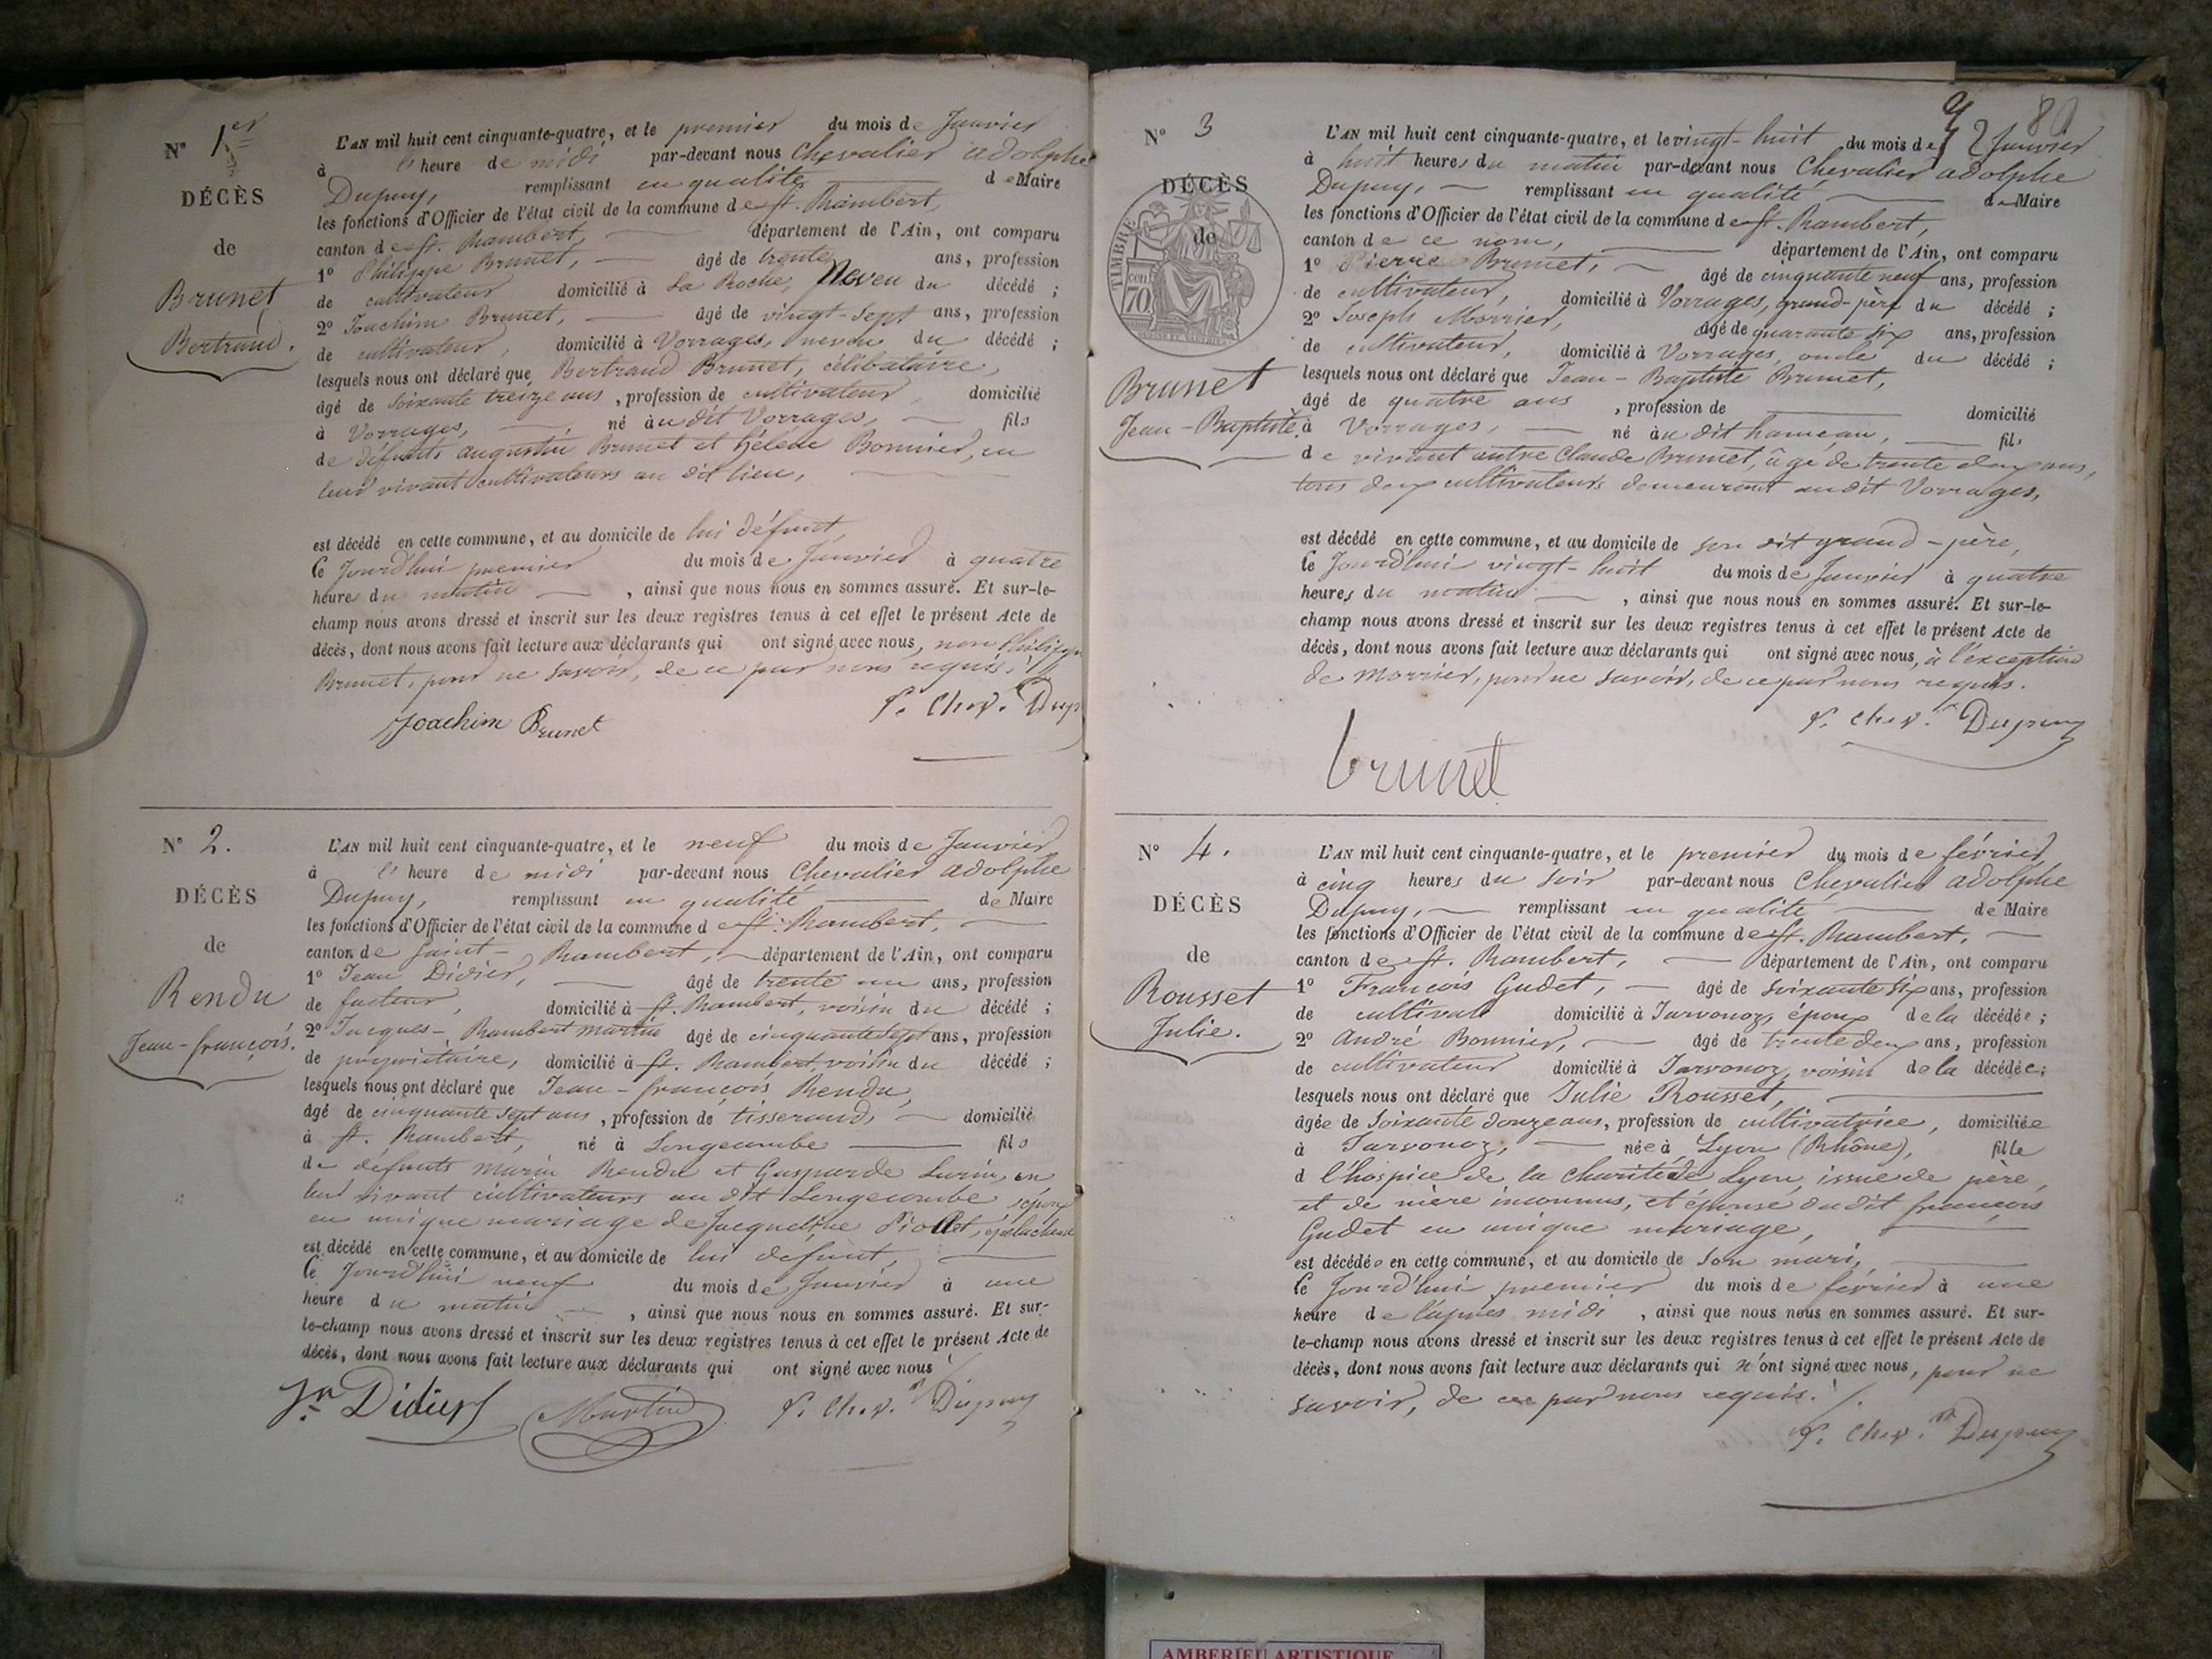 N° 1er
DÉCÈS
de
Brunet
Bertrand.
L'AN mil huit cent cinquante-quatre, et le premier du mois de Janvier
à l'heure de midi par-devant nous Chevalier adolphe
Dupuy, remplissant en qualité de Maire
les fonctions d'Officier de l'état civil de la commune de St. Rambert,
canton de St. Rambert, département de l'Ain, ont comparu
1° Philippe Brunet, âgé de trente ans, profession
de cultivateur domicilié à La Roche, Neveu du décédé ;
2° Joachim Brunet, âgé de vingt-sept ans, profession
de cultivateur, domicilié à Vorrages, neveu du décédé ;
lesquels nous ont déclaré que Bertrand Brunet, célibataire,
âgé de soixante treize ans, profession de cultivateur, domicilié
à Vorrages, né au dit Vorrages, fils
de défunts augustin Brunet et hélène Bonnier, en
leur vivant cultivateurs au dit lieu,
est décédé en cette commune, et au domicile de lui défunt,
le Jourd'hui premier du mois de Janvier à quatre
heures du matin, ainsi que nous nous en sommes assuré. Et sur-le-
champ nous avons dressé et inscrit sur les deux registres tenus à cet effet le présent Acte de
décès, dont nous avons fait lecture aux déclarants qui ont signé avec nous, non Philippe
Brunet, pour ne savoir, de ce par nous requis.
Joachim Brunet
P. Chev. Dupuy
N° 2.
DÉCÈS
de
Rendu
Jean-françois.
L'AN mil huit cent cinquante-quatre, et le neuf du mois de Janvier
à l'heure de midi par-devant nous Chevalier adolphe
Dupuy, remplissant en qualité de Maire
les fonctions d'Officier de l'état civil de la commune de St. Rambert,
canton de Saint-Rambert, département de l'Ain, ont comparu
1° Jean Didier, âgé de trente un ans, profession
de facteur, domicilié à St. Rambert, voisin du décédé ;
2° Jacques-Rambert martin âgé de cinquante sept ans, profession
de propriétaire, domicilié à St. Rambert, voisin du décédé ;
lesquels nous ont déclaré que Jean-françois Rendu,
âgé de cinquante sept ans, profession de tisserand, domicilié
à St. Rambert, né à Longecombe fils
de défunts marin Rendu et Gusparde Lurin, en
leur vivant cultivateurs au dit Longecombe, époux
en unique mariage de Jacqueline Piollet,
est décédé en cette commune, et au domicile de lui défunt,
le Jourd'hui neuf du mois de Janvier à une
heure du matin, ainsi que nous nous en sommes assuré. Et sur-
le-champ nous avons dressé et inscrit sur les deux registres tenus à cet effet le présent Acte de
décès, dont nous avons fait lecture aux déclarants qui ont signé avec nous
Jn Didier
Martin
P. Chev. Dupuy
80
N° 3
DÉCÈS
de
TIMBRE
70 cen
Brunet
Jean-Baptiste.
L'AN mil huit cent cinquante-quatre, et le vingt-huit du mois de Janvier
à huit heures du matin par-devant nous Chevalier adolphe
Dupuy, remplissant en qualité de Maire
les fonctions d'Officier de l'état civil de la commune de St. Rambert,
canton de ce nom, département de l'Ain, ont comparu
1° Pierre Brunet, âgé de cinquante neuf ans, profession
de cultivateur, domicilié à Vorrages, grand-père du décédé ;
2° Joseph Morrier, âgé de quarante six ans, profession
de cultivateur, domicilié à Vorrages, oncle du décédé ;
lesquels nous ont déclaré que Jean-Baptiste Brunet,
âgé de quatre ans, profession de domicilié
à Vorrages, né au dit hameau, fils
de vivant autre Claude Brunet, âgé de trente deux ans,
tous deux cultivateurs demeurant au dit Vorrages,
est décédé en cette commune, et au domicile de son dit grand-père,
le Jourd'hui vingt-huit du mois de Janvier à quatre
heures du matin, ainsi que nous nous en sommes assuré. Et sur-le-
champ nous avons dressé et inscrit sur les deux registres tenus à cet effet le présent Acte de
décès, dont nous avons fait lecture aux déclarants qui ont signé avec nous, à l'exception
de Morrier, pour ne savoir, de ce par nous requis.
P. Chev. Dupuy
brunet
N° 4.
DÉCÈS
de
Rousset
Julie.
L'AN mil huit cent cinquante-quatre, et le premier du mois de février
à cinq heures du soir par-devant nous Chevalier adolphe
Dupuy, remplissant en qualité de Maire
les fonctions d'Officier de l'état civil de la commune de St. Rambert,
canton de St. Rambert, département de l'Ain, ont comparu
1° François Gudet, âgé de soixante six ans, profession
de cultivat domicilié à Javornoz, époux de la décédée ;
2° André Bonnier, âgé de trente deux ans, profession
de cultivateur domicilié à Javornoz, voisin de la décédée ;
lesquels nous ont déclaré que Julie Rousset,
âgée de soixante douze ans, profession de cultivatrice, domiciliée
à Javornoz, née à Lyon (Rhône), fille
d l'hospice de la charité de Lyon, issue de père,
et de mère inconnus, et épouse du dit françois
Gudet en unique mariage,
est décédée en cette commune, et au domicile de son mari,
le Jourd'hui premier du mois de février à une
heure de l'après midi, ainsi que nous nous en sommes assuré. Et sur-
le-champ nous avons dressé et inscrit sur les deux registres tenus à cet effet le présent Acte de
décès, dont nous avons fait lecture aux déclarants qui n'ont signé avec nous, pour ne
savoir, de ce par nous requis.
P. Chev. Dupuy
AMBERIEU ARTISTIQUE